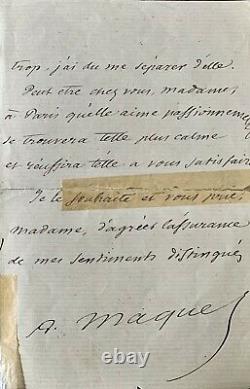 trop. j'ai du me séparer d'elle.
Peut être chez vous, madame,
à Paris qu'elle aime passionném
se trouvera telle plus calme
et réussira telle a vous satisfaire
Je le souhaite et vous prie,
madame, d'agréer l'assurance
de mes sentiments distingués
A. Maquet